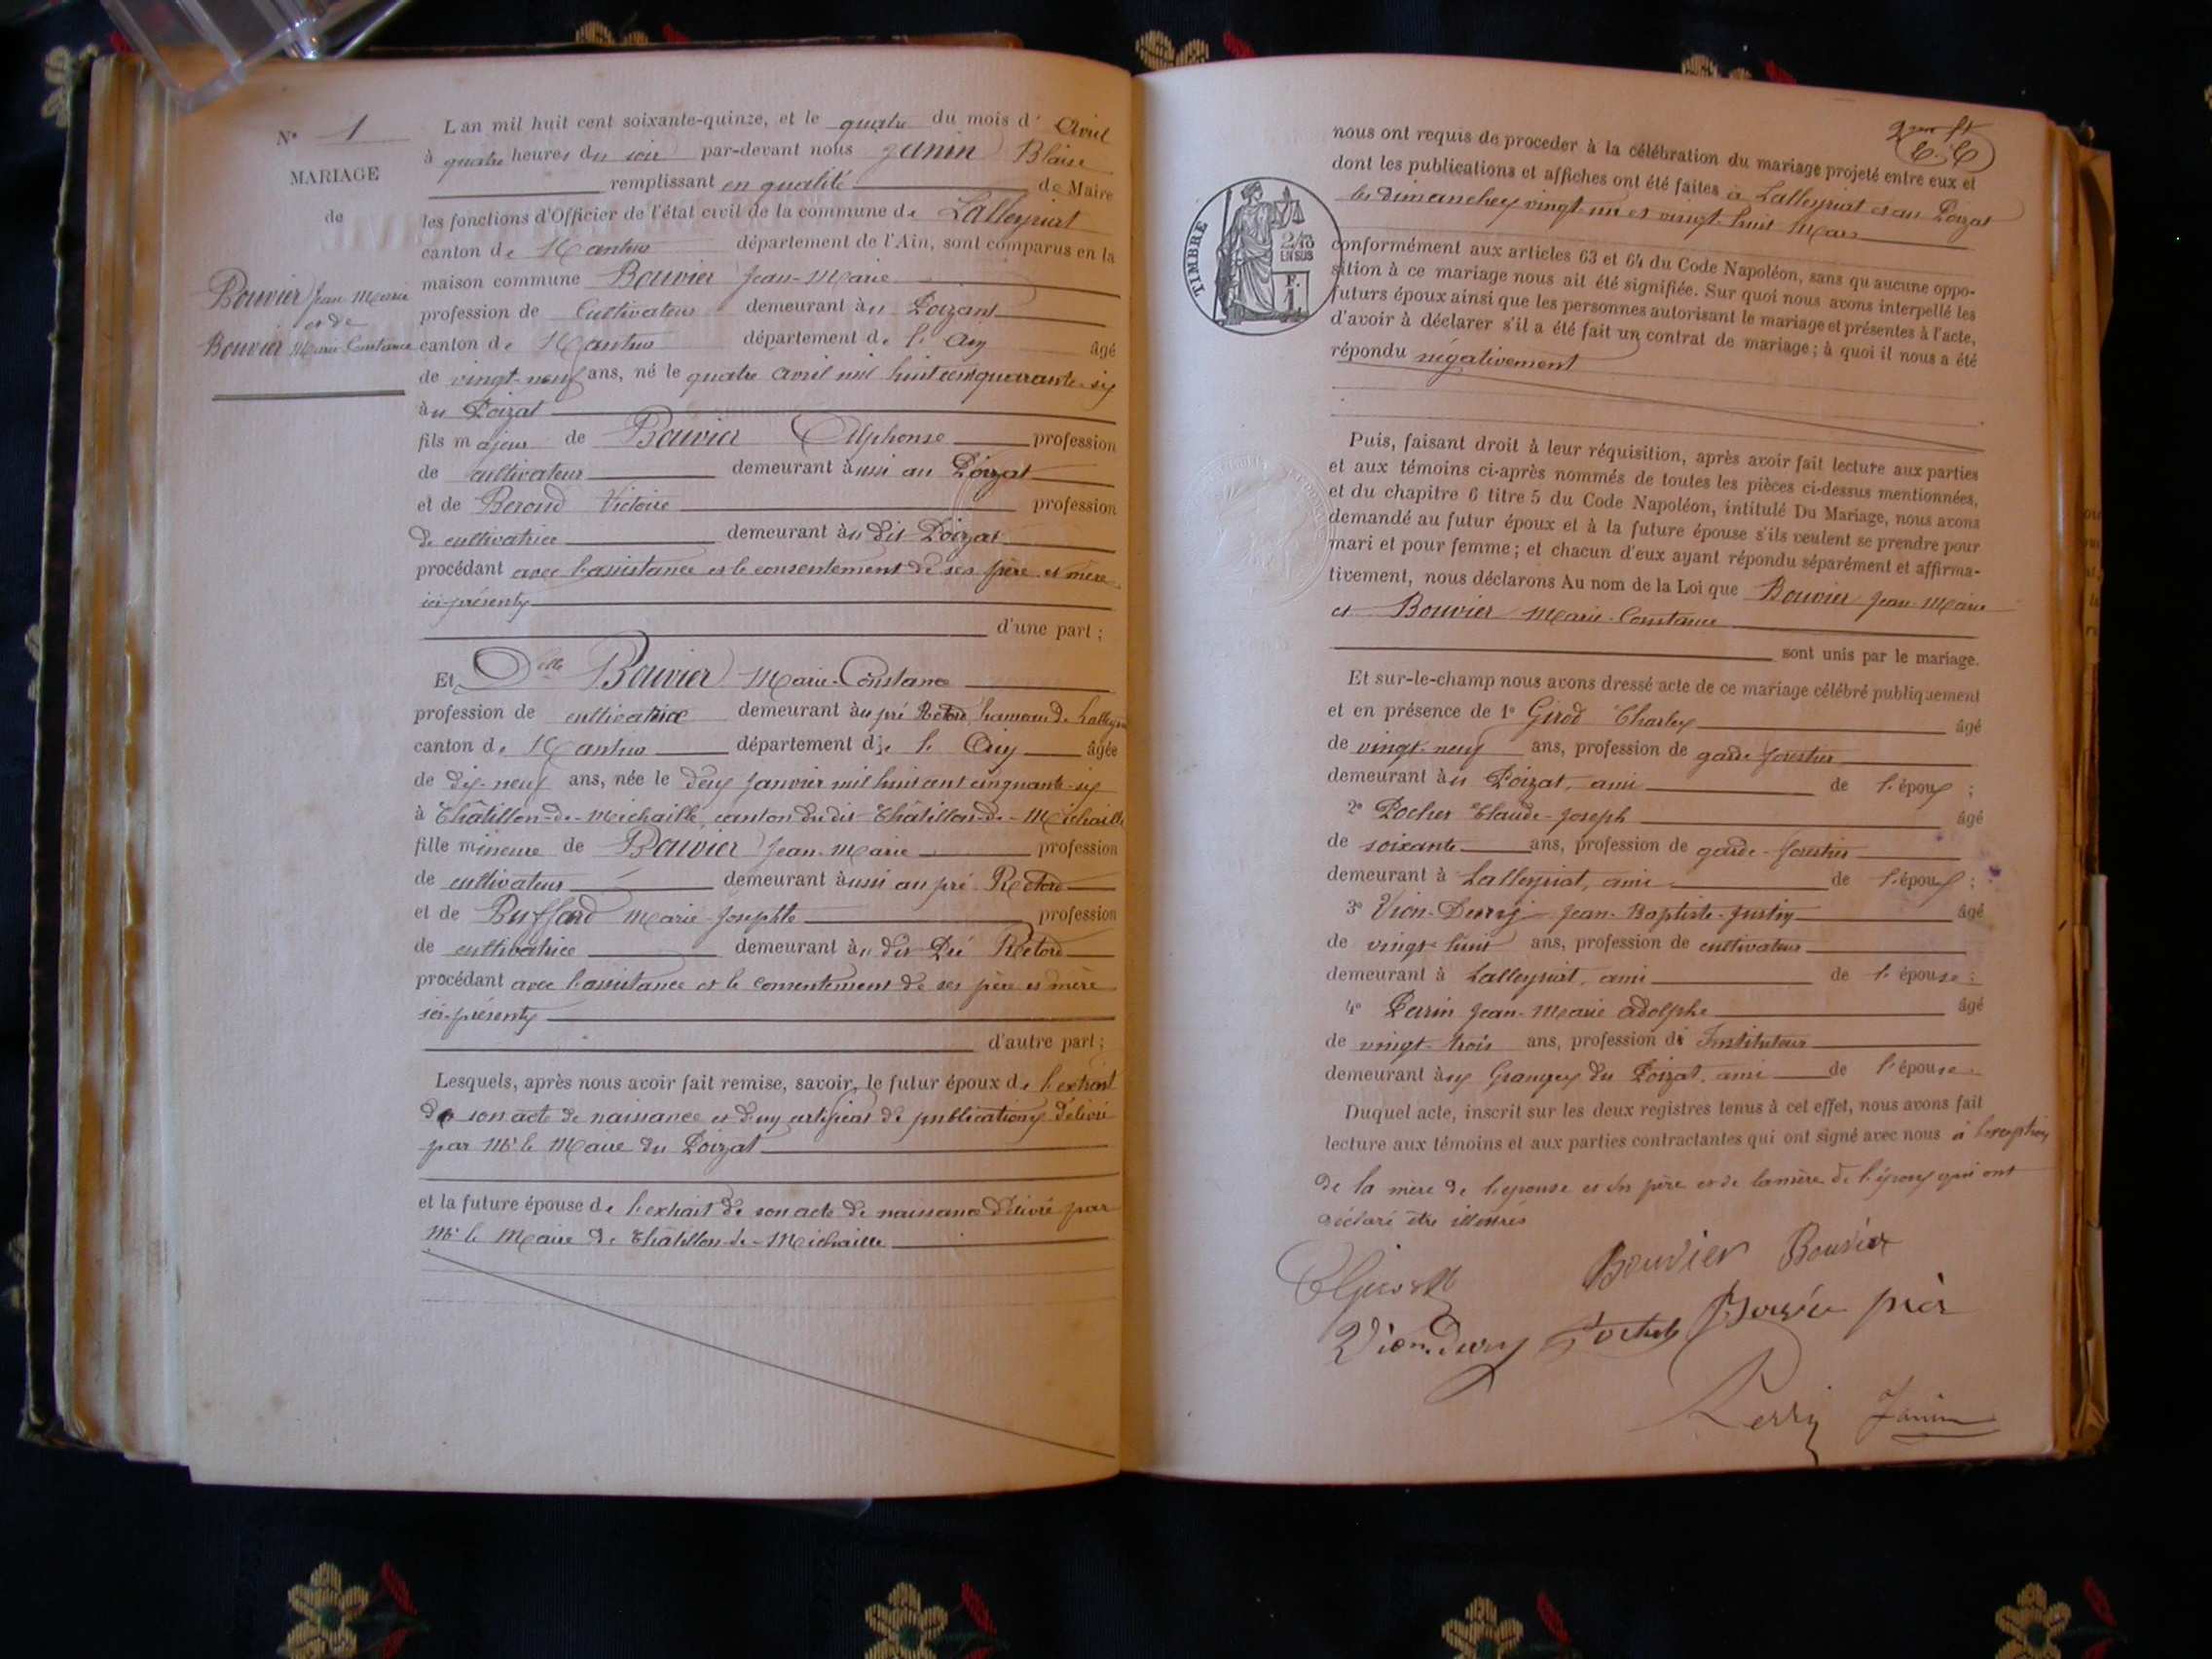 N° 1
MARIAGE
de
Bouvier Jean Marie
et de
Bouvier Marie Constance
L'an mil huit cent soixante-quinze, et le quatre du mois d' Avril
à quatre heures du soir par-devant nous Janin Blaise
remplissant en qualité de Maire
les fonctions d'Officier de l'état civil de la commune de Lalleyriat
canton de Nantua département de l'Ain, sont comparus en la
maison commune Bouvier Jean-Marie
profession de Cultivateur demeurant àu Poizat
canton de Nantua département de l'Ain âgé
de vingt-neuf ans, né le quatre avril mil huit cent quarante-six
àu Poizat
fils majeur de Bouvier Alphonse profession
de cultivateur demeurant àussi au Poizat
et de Beroud Victoire profession
de cultivatrice demeurant àu dit Poizat
procédant avec l'assistance et le consentement de ses père et mère
ici-présents
d'une part ;
Et Dlle Bouvier Marie-Constance
profession de cultivatrice demeurant àu pré Retord, hameau de Lalleyriat
canton de Nantua département de l'Ain âgée
de dix-neuf ans, née le deux janvier mil huit cent cinquante-six
à Châtillon-de-Michaille, canton du dit Châtillon-de-Michaille
fille mineure de Bouvier Jean-Marie profession
de cultivateur demeurant àussi au pré Retord
et de Buffard Marie-Josephte profession
de cultivatrice demeurant àu dit Pré Retord
procédant avec l'assistance et le consentement de ses père et mère
ici-présents
d'autre part ;
Lesquels, après nous avoir fait remise, savoir, le futur époux de l'extrait
de son acte de naissance et d'un certificat de publications délivré
par Mr le Maire du Poizat
et la future épouse de l'extrait de son acte de naissance délivré par
Mr le Maire de Châtillon-de-Michaille
nous ont requis de proceder à la célébration du mariage projeté entre eux et
dont les publications et affiches ont été faites à Lalleyriat et au Poizat
les dimanches vingt-un et vingt-huit Mars
TIMBRE
2/10
EN SUS
F.
1
conformément aux articles 63 et 64 du Code Napoléon, sans qu'aucune oppo-
sition à ce mariage nous ait été signifiée. Sur quoi nous avons interpellé les
futurs époux ainsi que les personnes autorisant le mariage et présentes à l'acte,
d'avoir à déclarer s'il a été fait un contrat de mariage ; à quoi il nous a été
répondu négativement
Puis, faisant droit à leur réquisition, après avoir fait lecture aux parties
et aux témoins ci-après nommés de toutes les pièces ci-dessus mentionnées,
et du chapitre 6 titre 5 du Code Napoléon, intitulé Du Mariage, nous avons
demandé au futur époux et à la future épouse s'ils veulent se prendre pour
mari et pour femme ; et chacun d'eux ayant répondu séparément et affirma-
tivement, nous déclarons Au nom de la Loi que Bouvier Jean-Marie
et Bouvier Marie-Constance
sont unis par le mariage.
Et sur-le-champ nous avons dressé acte de ce mariage célébré publiquement
et en présence de 1° Girod Charles âgé
de vingt-neuf ans, profession de garde-forestier
demeurant àu Poizat, ami de l'époux ;
2° Pochet Claude-Joseph âgé
de soixante ans, profession de garde-forestier
demeurant à Lalleyriat, ami de l'époux ;
3° Vion-Dury Jean-Baptiste-Justin âgé
de vingt-huit ans, profession de cultivateur
demeurant à Lalleyriat, ami de l'épouse ;
4° Perrin Jean-Marie Adolphe âgé
de vingt-trois ans, profession de Instituteur
demeurant àux Granges du Poizat, ami de l'épouse.
Duquel acte, inscrit sur les deux registres tenus à cet effet, nous avons fait
lecture aux témoins et aux parties contractantes qui ont signé avec nous à l'exception
de la mère de l'épouse et du père et de la mère de l'époux qui ont
déclaré être illettrés
Bouvier Bouvier
Vion-Dury Pochet Bouvier père
Perrin Janin